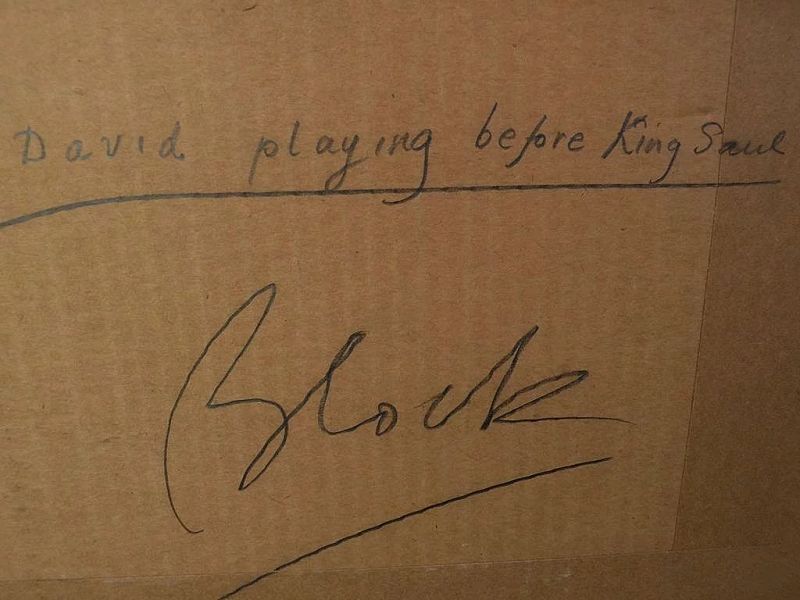 David playing before King Saul
Block